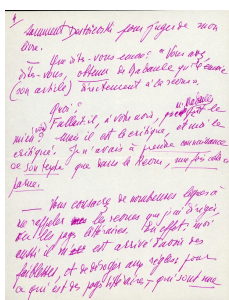 pour juger de mon
livre.
— Que dites-vous encore? "Vous avez,
dites-vous, obtenu de Nadeau qu'il envoie
(son article) directement à la revue".
Quoi?
Fallait-il, à votre avis, que
mien? mais il est le critique, et moi le
critiqué. Je n'avais à prendre connaissance
de son texte que dans la Revue, une fois
parue.
— Vous de nombreuses lignes à
me rappeler les revues que j'ai dirigées
ou les pages littéraires. En effet, moi
aussi il m'est arrivé d'avoir des
faiblesses, et de déroger aux règles pour
ce qui est des pages littéraires, qui sont une